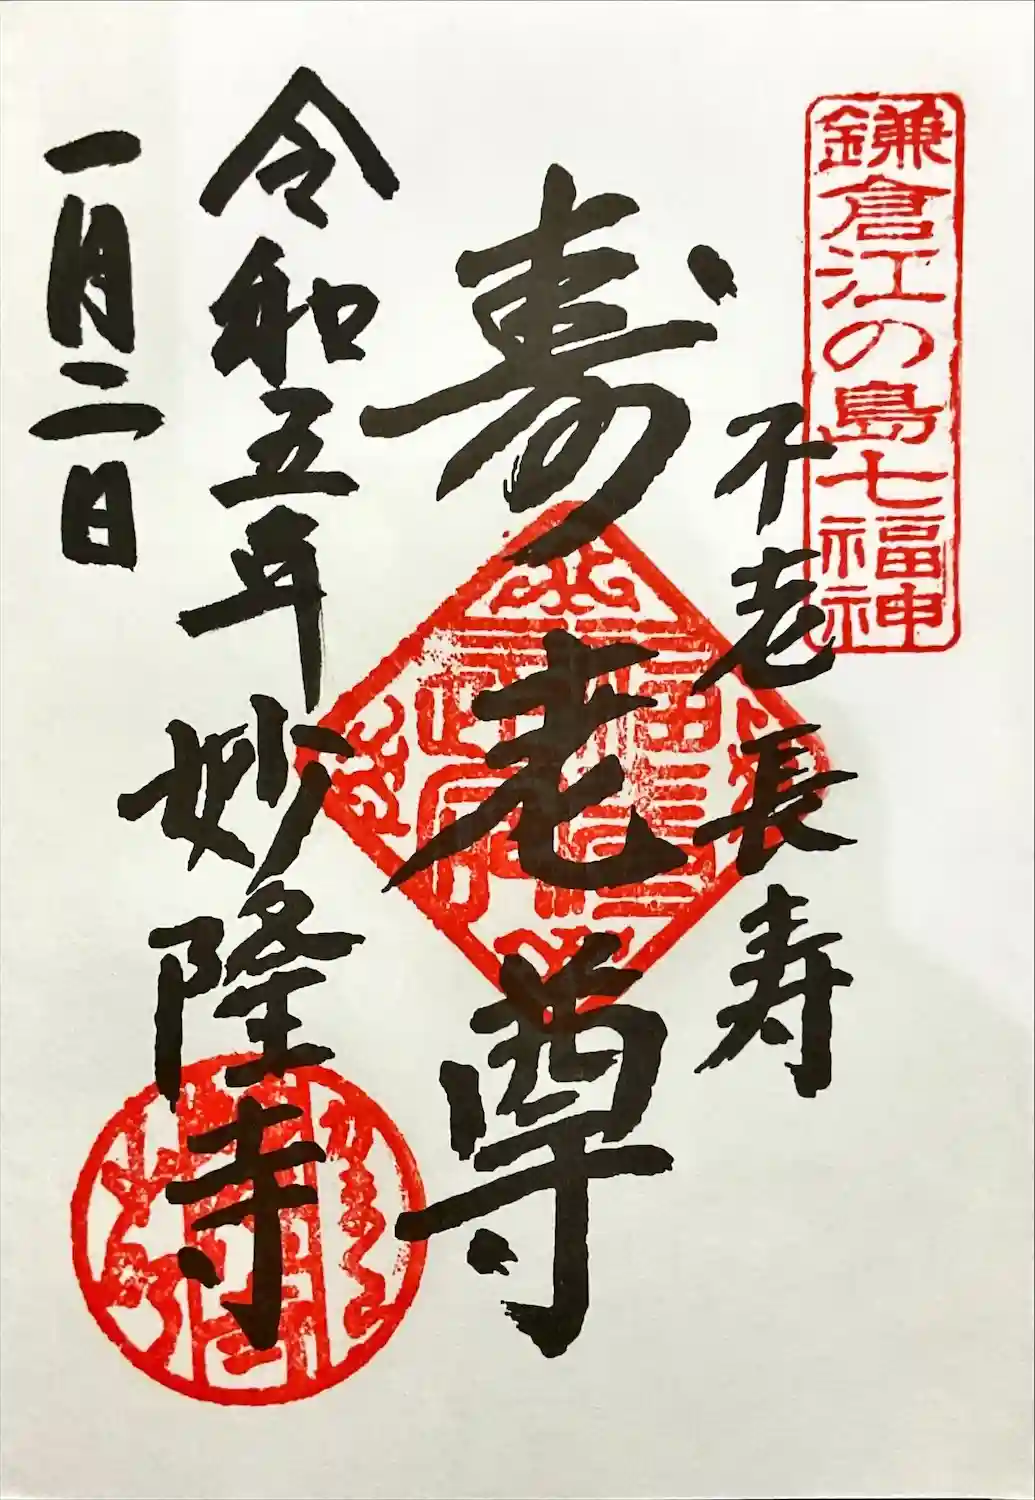 鎌倉江の島七福神
不老長寿
寿老尊
令和五年 妙隆寺
一月二日